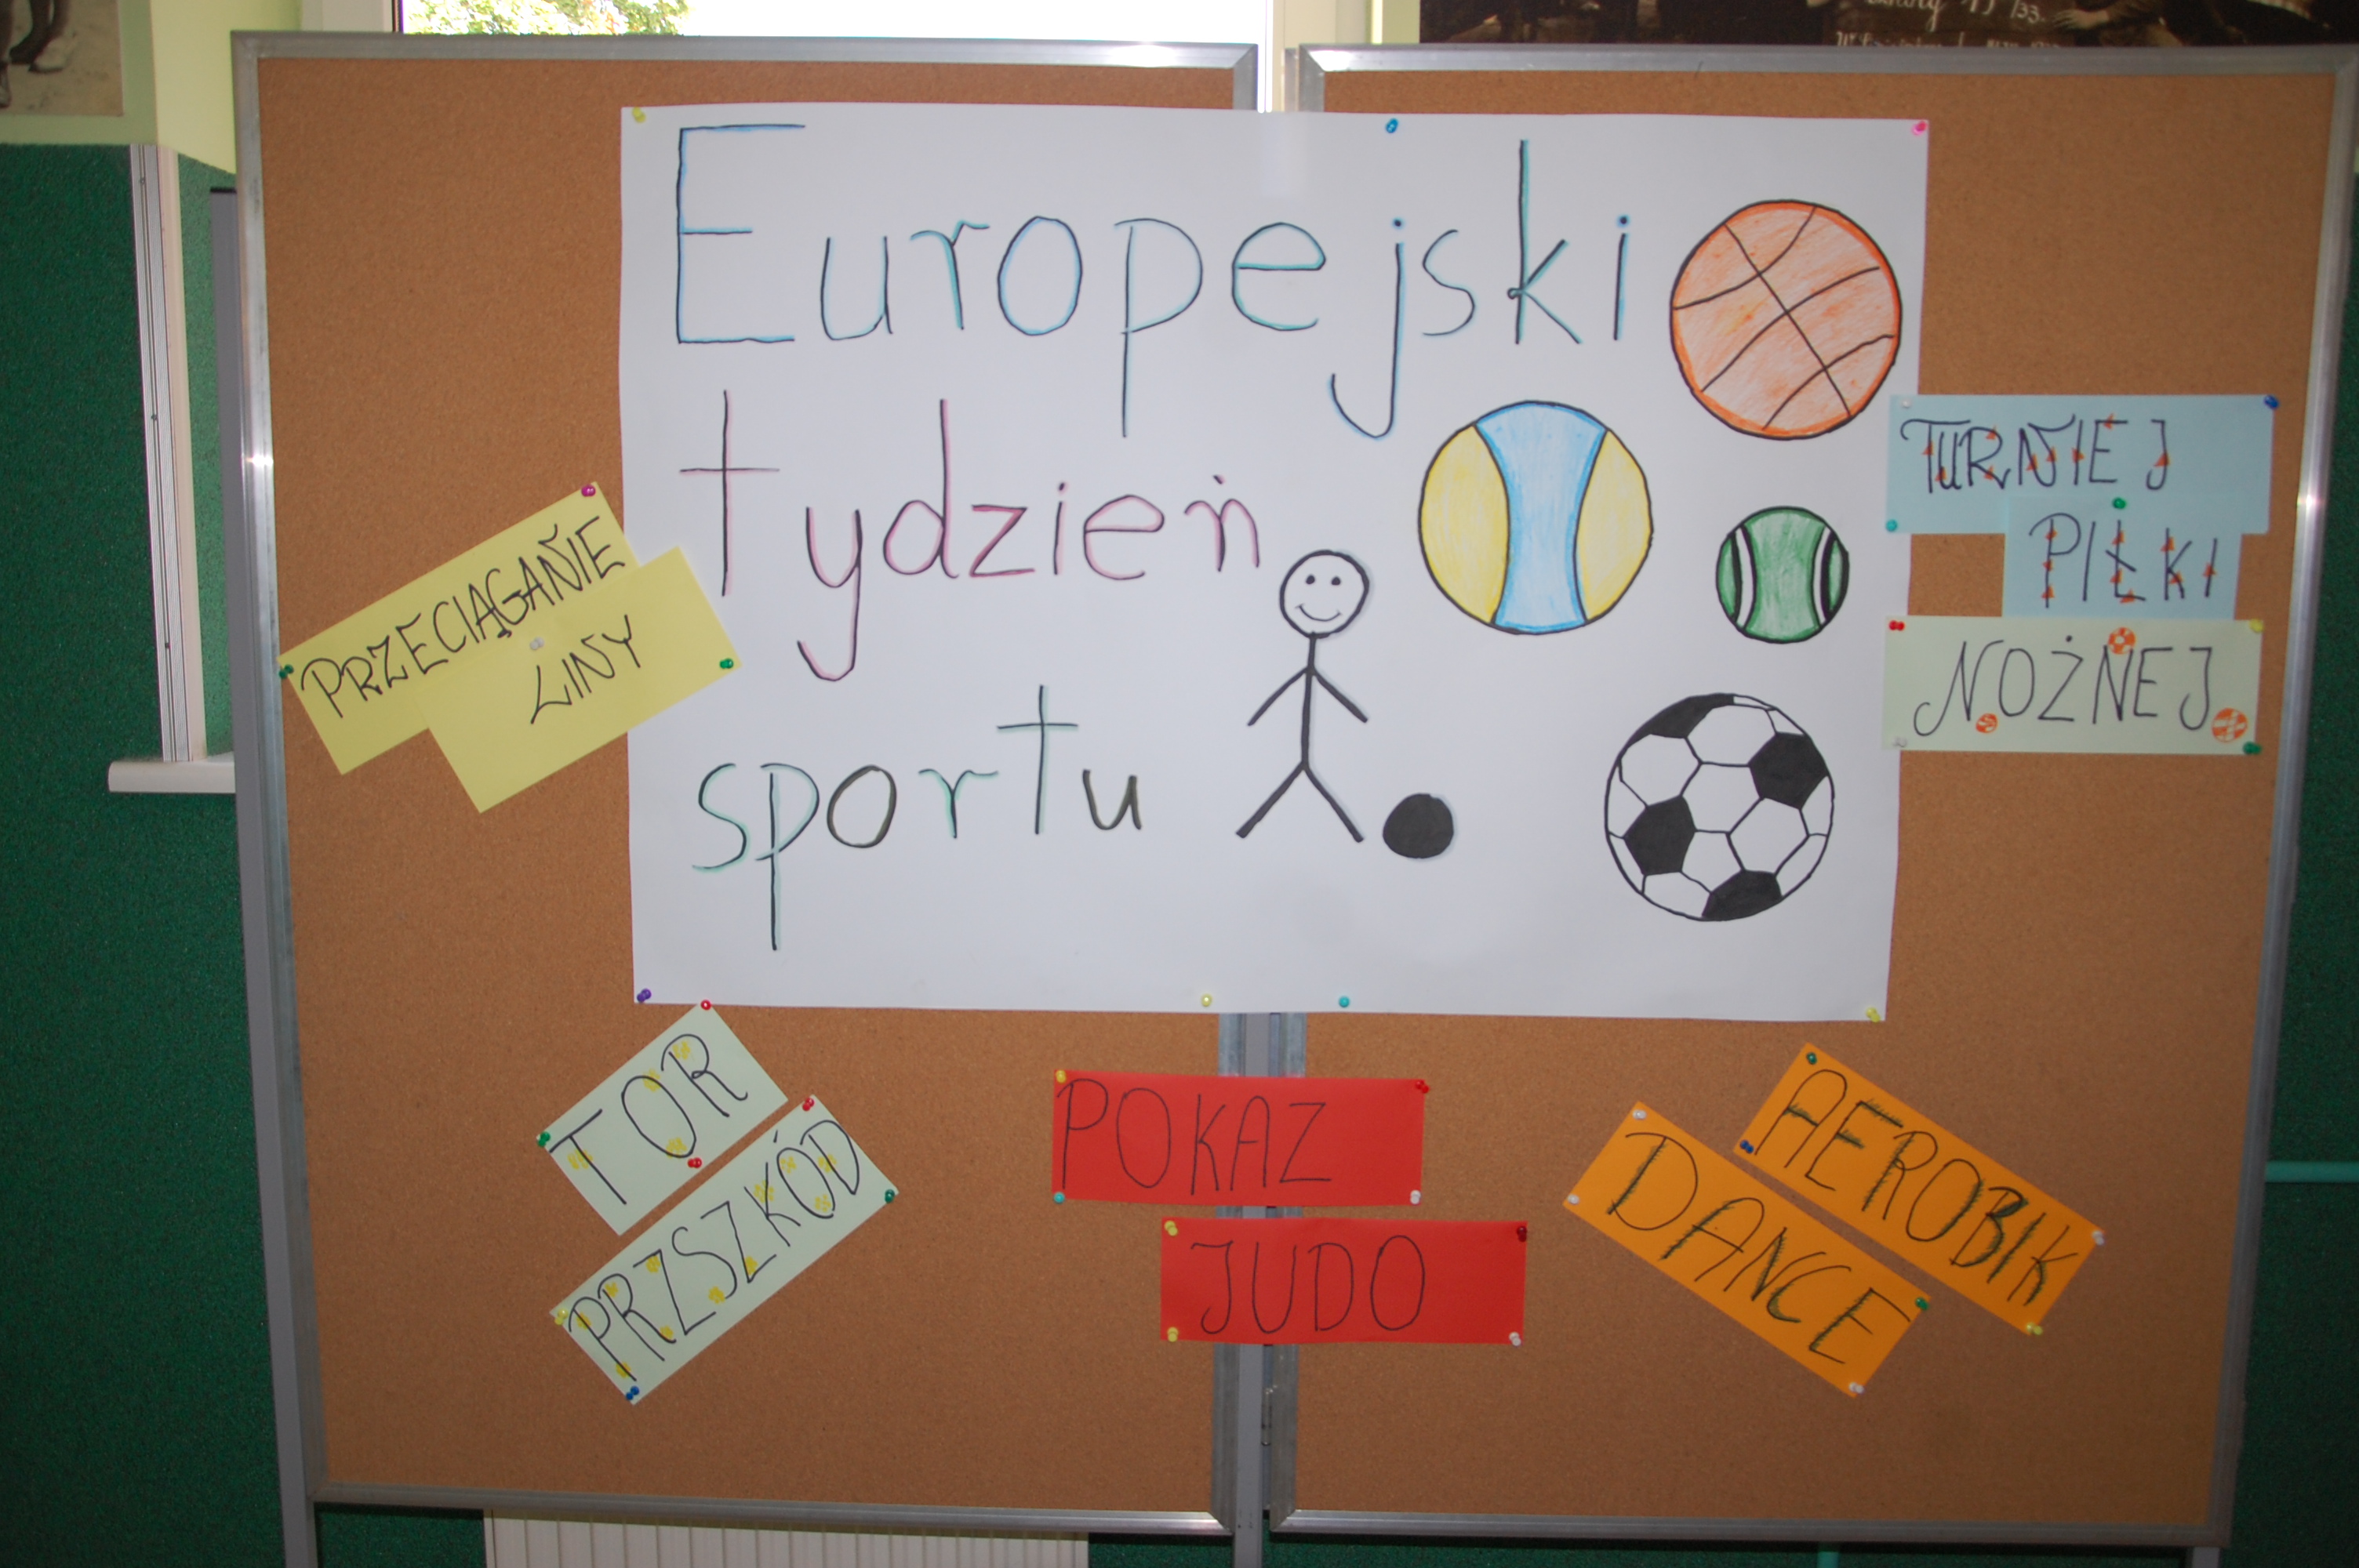 Europejski
tydzień
sportu
PRZECIĄGANIE
LINY
TURNIEJ
PIŁKI
NOŻNEJ
TOR
PRZSZKÓD
POKAZ
JUDO
AEROBIK
DANCE